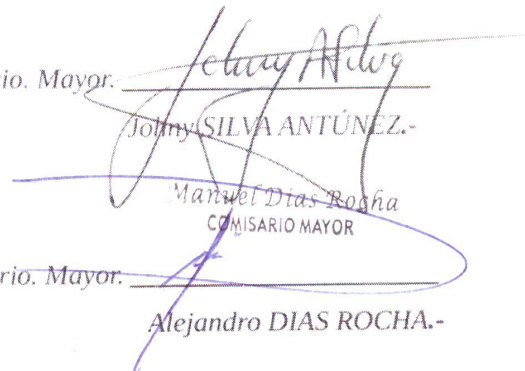 io. Mayor.
Johny A Silva
Johny SILVA ANTÚNEZ.-
Manuel Dias Rocha
COMISARIO MAYOR
rio. Mayor.
Alejandro DIAS ROCHA.-